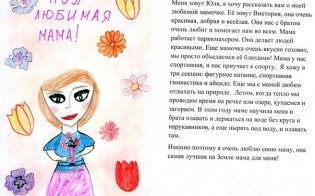 МОЯ
ЛЮБИМАЯ
МАМА!
Меня зовут Юля, я хочу рассказать вам о моей
любимой мамочке. Её зовут Виктория, она очень
красивая, добрая и весёлая. Она нас с братом
очень любит и помогает нам во всем. Мама
работает парикмахером. Она делает людей
красивыми. Еще мамочка очень вкусно готовит,
мы просто объедаемся её блюдами! Мама у нас
спортивная, и нас приучает к спорту. Я хожу в
три секции: фигурное катание, спортивная
гимнастика и айкидо. Еще мы с мамой любим
отдыхать на природе. Летом, когда тепло мы
проводим время на речке или озере, купаемся и
загораем. В этом году маме научила меня и
брата плавать и держаться на воде без круга и
нарукавников, а еще нырять под воду, и плавать
там.
Именно поэтому я очень люблю свою маму, она
самая лучшая на Земле мама для меня!